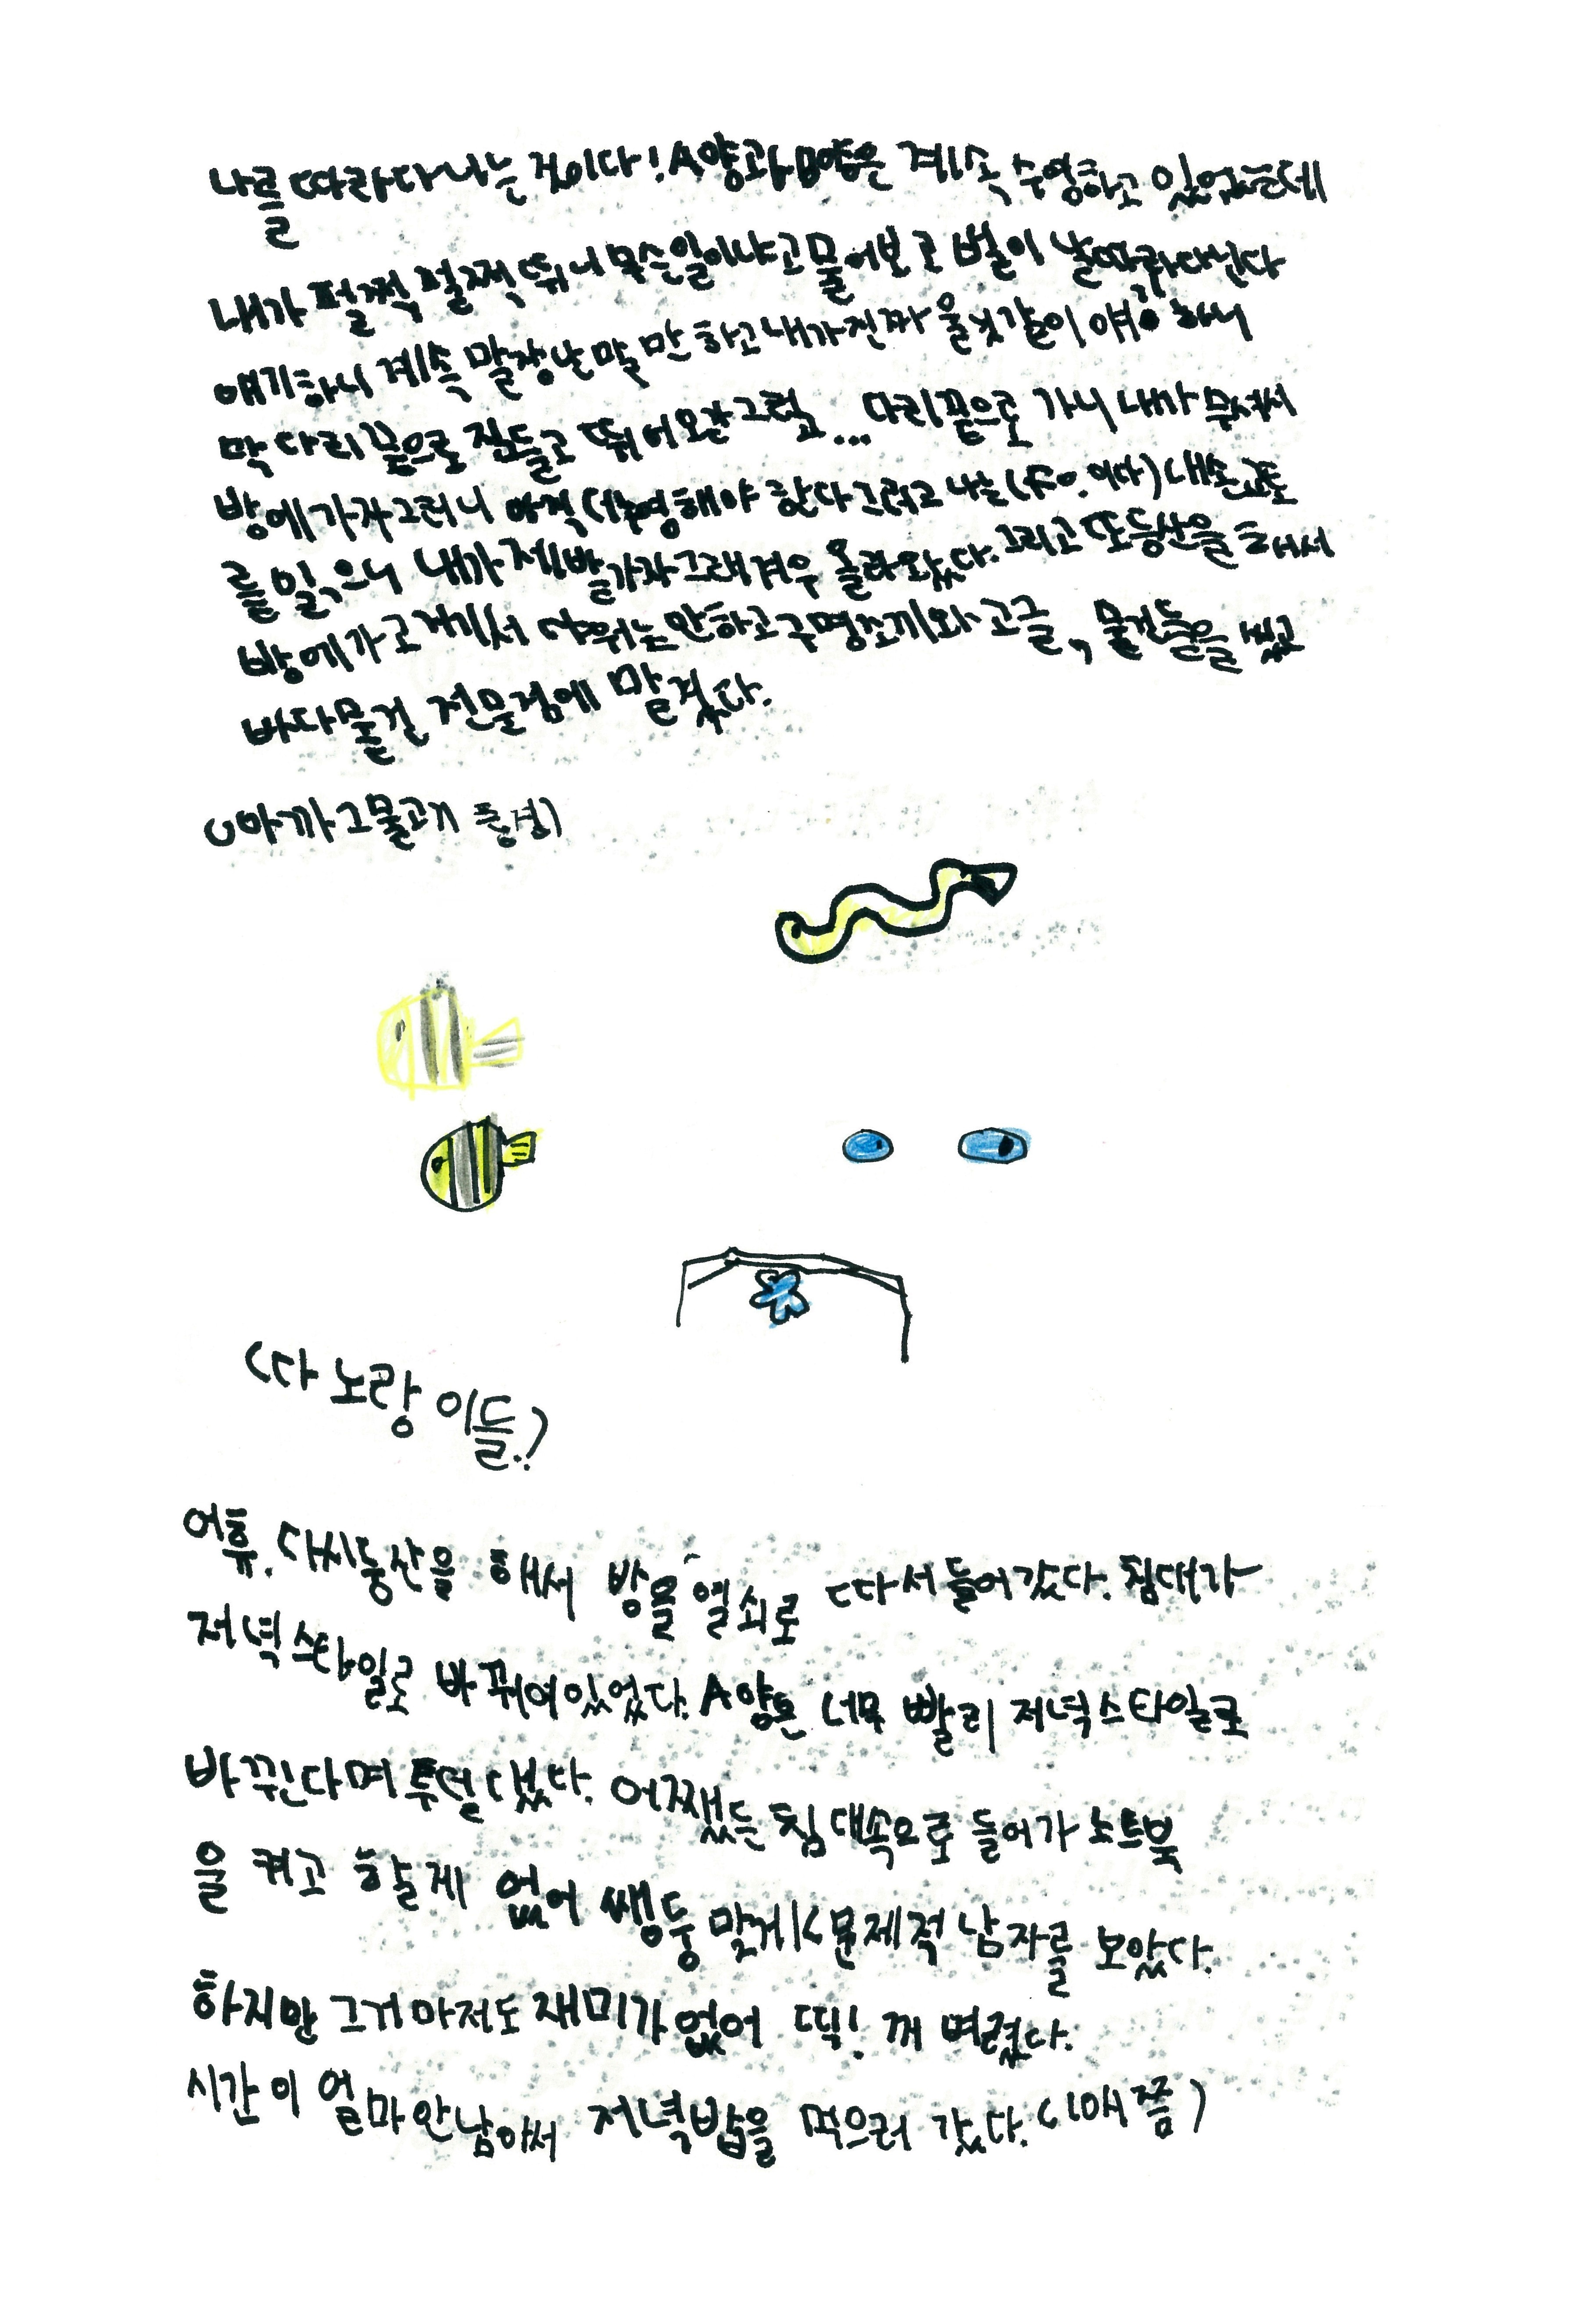 나를 따라다니는 것이다! A양과 B양은 계속 수영하고 있었는데
내가 펄쩍 펄쩍 뛰니 무슨일이냐고 물어보고 벌이 날따라다닌다
얘기하니 계속 말장난말만 하고 내가진짜 울것같이 얘기하니
막 다리 끝으로 짐들고 뛰어오잖그렇고... 다리끝으로 가니 내가 무서워서
방에 가자그러니 아직 더수영해야 한다그러고 나는 내손
를 잃으니 내가 제발가자그래 겨우 올라왔다. 그리고 또등산을 해서
방에가고 거기서 샤워는안하고 구명조끼와 고글, 물건들을 씻고
바다물건 전문점에 맡겼다.
(아까 그물고기 풍경)
(다 노랑 이들.)
어휴. 다시등산을 해서 방을 열쇠로 따서들어갔다. 침대가
저녁스타일로 바꿔여있었다. A양은 너무 빨리 저녁스타일로
바뀐다며 투덜댔다. 어쨌든 침대속으로 들어가 노트북
을 켜고 할게 없어 쌩뚱 맞게 문제적 남자를 보았다.
하지만 그거 마저도 재미가 없어 띡! 꺼 벼렸다.
시간이 얼마안남아서 저녁밥을 먹으러 갔다. (10시 쯤)